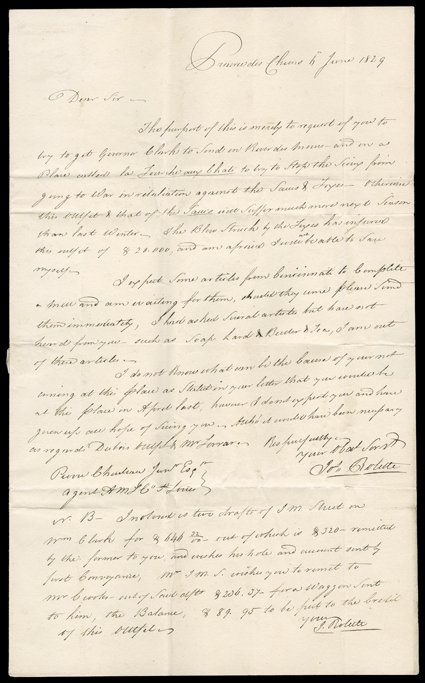 Prairie des Chiens 6 June 1829
Dear Sir
The purport of this is merely to request of you to
try to get Governor Clark to Send on River des Moines and on a
Place called la to try to Stop the Sioux from
going to War in retaliation against the Saues & Foxes - Otherwise
this outfit & that of the Saues will Suffer much more next Season
than last Winter. The Blow Struck by the Foxes has injured
this outfit of $ 20.000, and am afraid I will be able to Save
myself
I expect Some articles from Cincinnati to Complete
a Mill and am waiting for them, should they come please Send
them immediately, I had asked Several articles but have not
heard from you - such as Soap lard & Tea, I am out
of these articles
I do not Know what can be the Cause of your not
coming at this place as Stated in your letter that you would be
at the Place in April last, however I do not expect you and have
given up all hope of Seeing you. it would have been necessary
as regards Dubois outfit & Mr Farrar.
Respectfully
Your Obdt Servt
Jos Rolette
Pierre Chouteau Junr Esqr
agent A M F Co St Louis
N. B - Inclosed is two drafts of J M Street on
Wm Clark for $ 646 out of which is $ 320 - remitted
by the former to you, and wishes his note and account sent by
first Conveyance, Mr J M S. wishes you to remit to
Mr Crooks out of Said $ 236.27 for a Waggon Sent
to him, the Balance, $ 89.95 to be put to the Credit
of this outfit
Your
J. Rolette